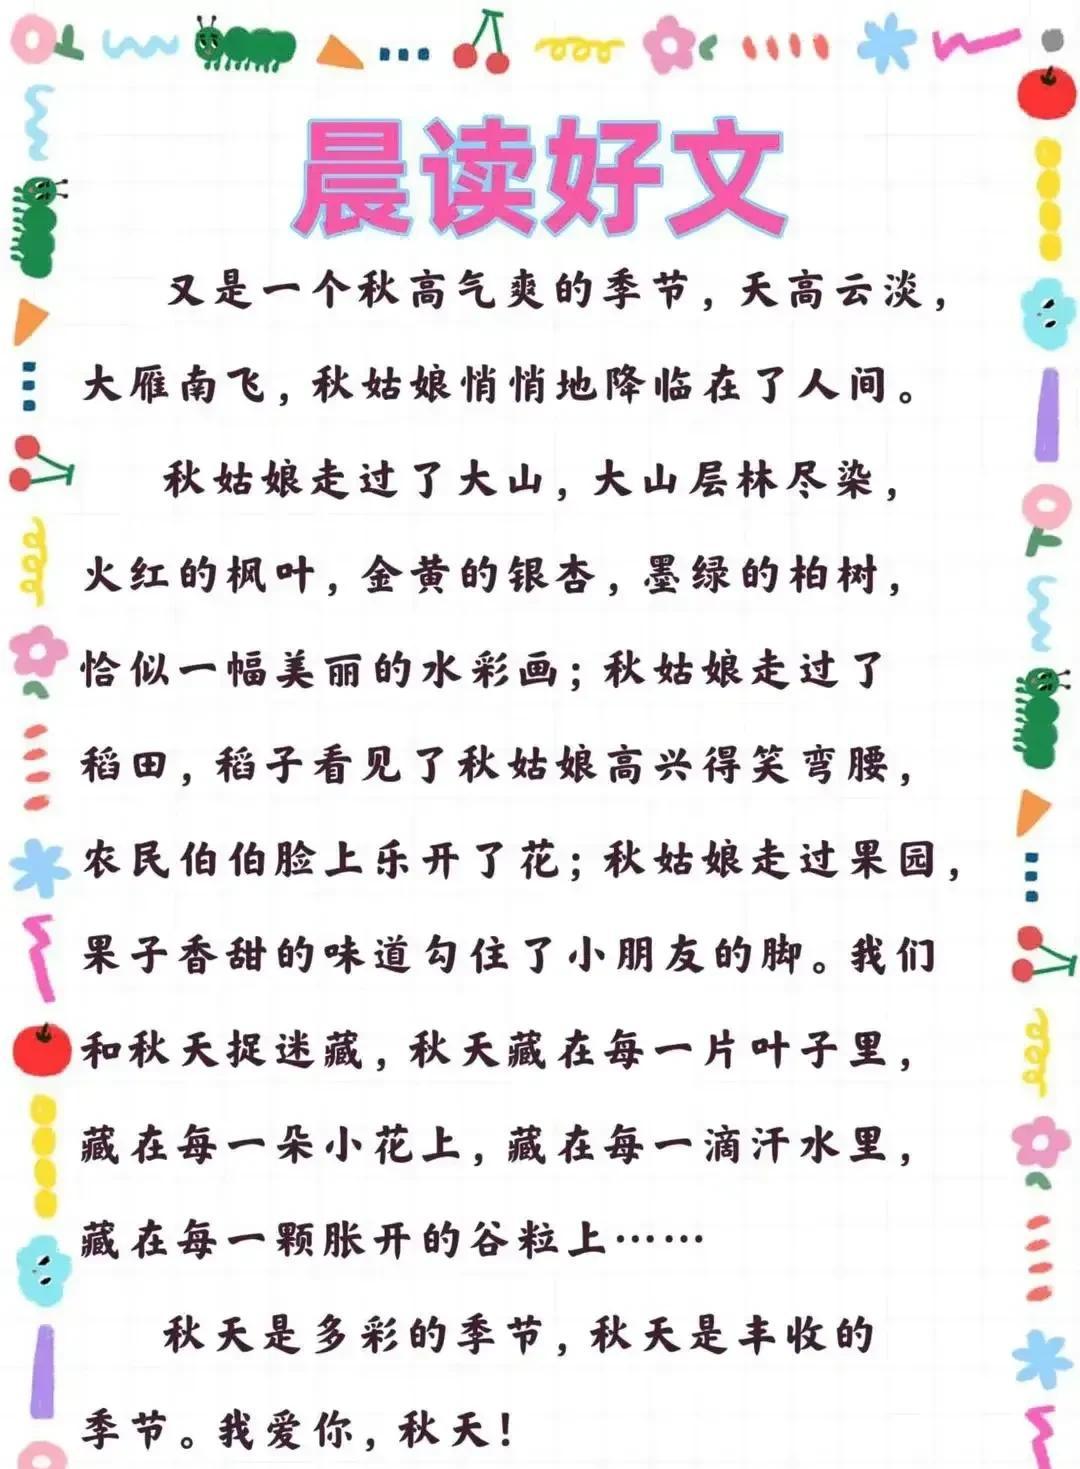 晨读好文
又是一个秋高气爽的季节，天高云淡，
大雁南飞，秋姑娘悄悄地降临在了人间。
秋姑娘走过了大山，大山层林尽染，
火红的枫叶，金黄的银杏，墨绿的柏树，
恰似一幅美丽的水彩画；秋姑娘走过了
稻田，稻子看见了秋姑娘高兴得笑弯腰，
农民伯伯脸上乐开了花；秋姑娘走过果园，
果子香甜的味道勾住了小朋友的脚。我们
和秋天捉迷藏，秋天藏在每一片叶子里，
藏在每一朵小花上，藏在每一滴汗水里，
藏在每一颗胀开的谷粒上……
秋天是多彩的季节，秋天是丰收的
季节。我爱你，秋天！